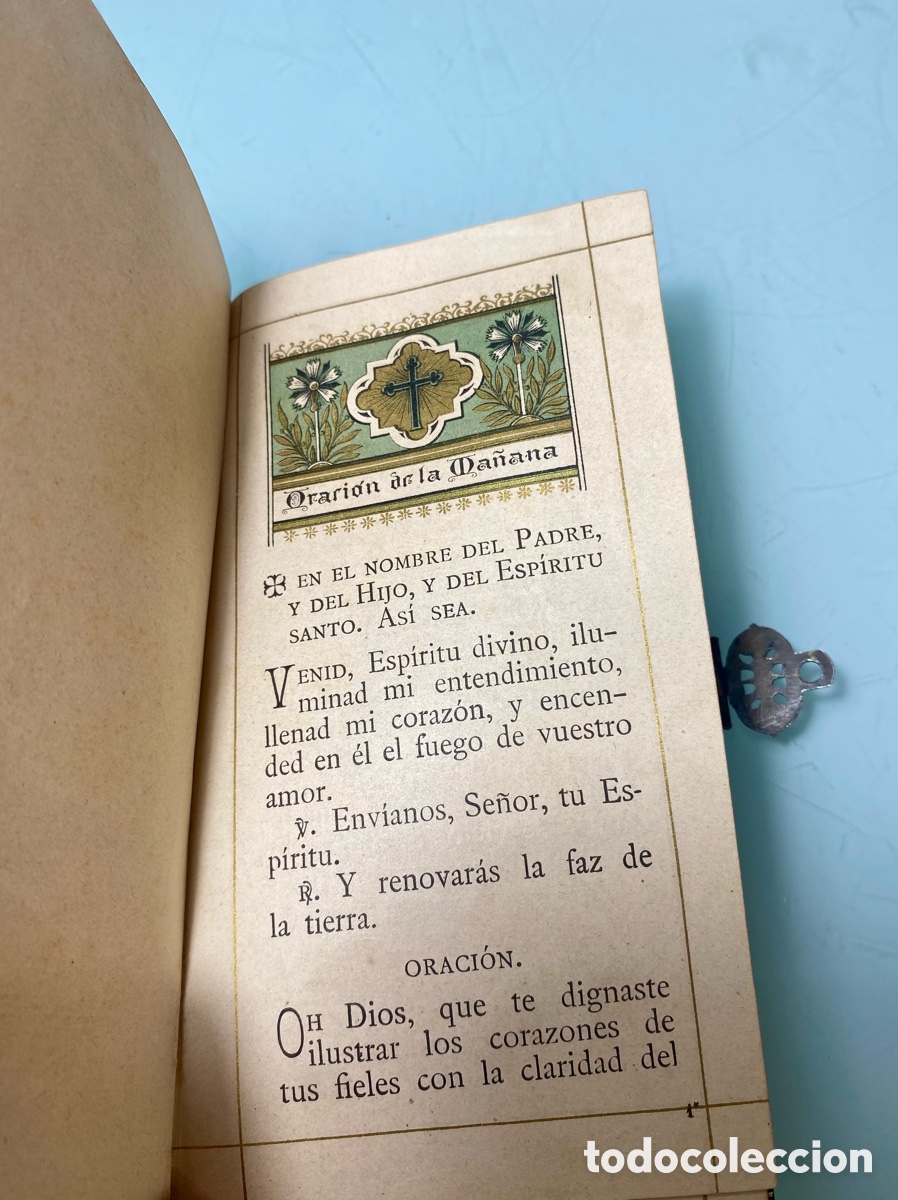 Oración de la Mañana
✠ EN EL NOMBRE DEL PADRE,
Y DEL HIJO, Y DEL ESPÍRITU
SANTO. ASÍ SEA.
VENID, Espíritu divino, ilu-
minad mi entendimiento,
llenad mi corazón, y encen-
ded en él el fuego de vuestro
amor.
℣. Envíanos, Señor, tu Es-
píritu.
℟. Y renovarás la faz de
la tierra.
ORACIÓN.
OH Dios, que te dignaste
ilustrar los corazones de
tus fieles con la claridad del
1*
todocoleccion